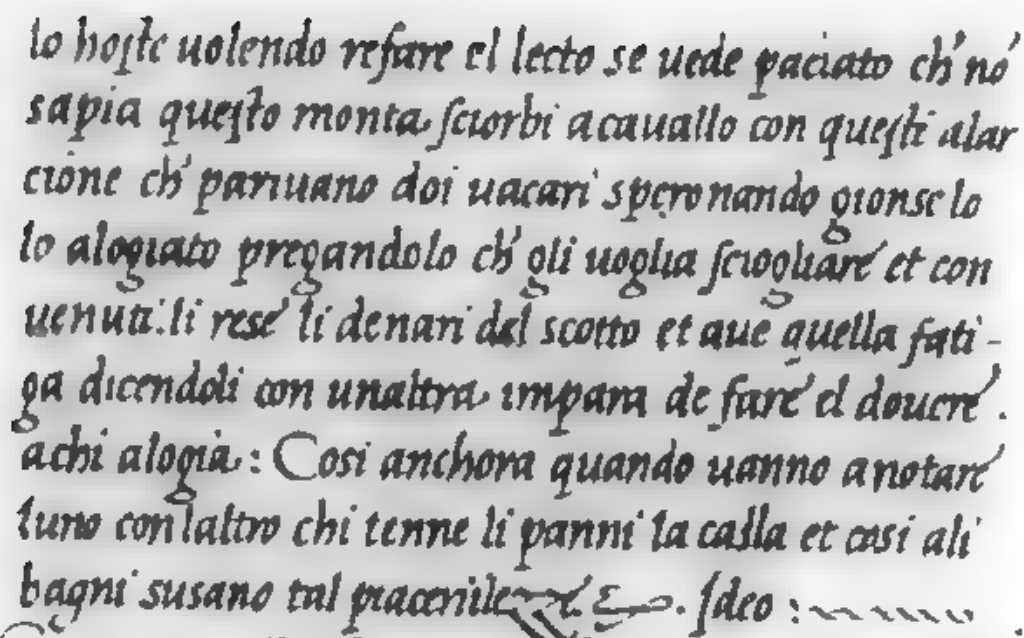 lo hoste uolendo refare el lecto se uede paciato ch' nō
sapia questo monta sciorbi acauallo con questi alar
cione ch' pariuano doi uacari speronando gionse lo
lo alogiato pregandolo ch' gli uoglia sciogliare et con
uenuti: li rese li denari del scotto et aue quella fati-
ga dicendoli con unaltra impara de fare el douere .
achi alogia : Cosi anchora quando uanno anotare
luno con laltro chi tenne li panni la calla et cosi ali
bagni susano tal piaceuile . Ideo :